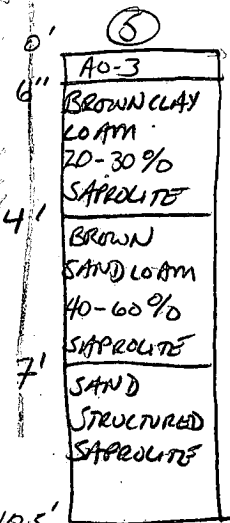 5
0'
A0-3
6"
BROWN CLAY
LOAM
20-30%
SAPROLITE
4'
BROWN
SAND LOAM
40-60%
SAPROLITE
7'
SAND
STRUCTURED
SAPROLITE
10.5'